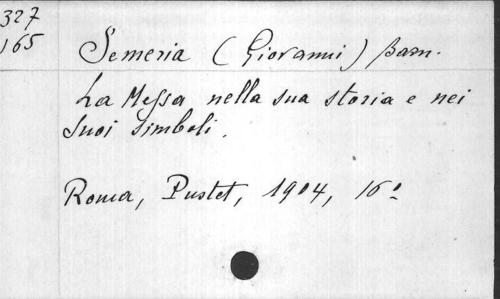 327
165
Semeria (Giovanni) Barn.
La Messa nella sua storia e nei
suoi simboli.
Roma, Pustet, 1904, 16º